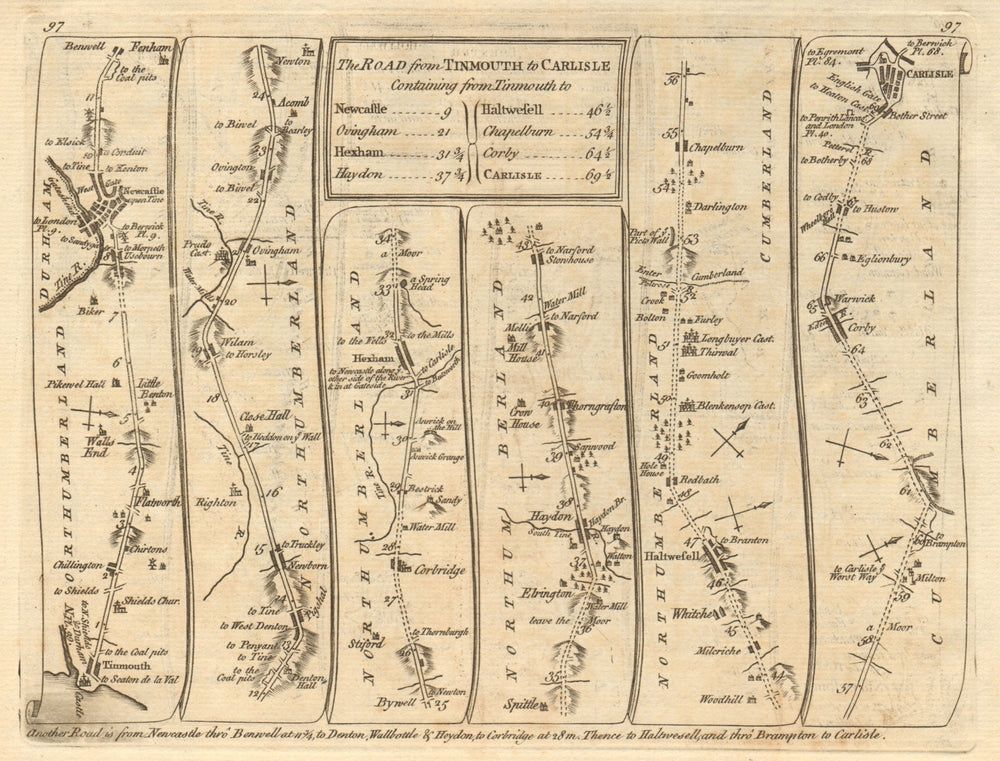 97
97
The ROAD from TINMOUTH to CARLISLE
Containing from Tinmouth to
Newcastle ...... 9
Ovingham ...... 21
Hexham ...... 31 3/4
Haydon ...... 37 3/4
Haltwesell ...... 46 1/2
Chapelburn ...... 54 3/4
Corby ...... 64 1/2
CARLISLE ...... 69 1/2
Benwell
Fenham
to the
Coal pits
11
to Elsick
10
to Conduit
to Tine
to Kenton
West
Gate
Newcastle
upon Tine
Gateside
to London
Pl. 9.
to Berwick
Pl. 9.
to Sandgate
to Morpeth
Usebourn
8
Tine R.
DURHAM
Biker
7
6
Pikewel Hall
Little
Benton
5
Walls
End
4
Flatworth
3
Chirtons
Chillington
2
to Shields
Shields Chur.
1
to the Coal pits
Tinmouth
to Seaton de la Val
Castle
NORTHUMBERLAND
Newton
24
Acomb
to Biwel
to Bearley
23
Ovington
to Biwel
22
Tine R.
Prudo
Cast.
Ovingham
21
Water Mills
20
Wilam
19
to Horsley
18
Close Hall
to Heddon on ye Wall
17
Tine
R.
Righton
16
15
to Truckley
Newborn
14
to Tine
to West Denton
to Penyant
13
to Tine
to the
Coal pits
12
Denton
Hall
NORTHUMBERLAND
34
a Moor
a Spring
Head
33
32
to the Mills
to the Fells
Hexham
to Carlisle
to Newcastle along ye
other side of the River
& in at Gateside
31
30
Anwick on
the Hill
Anwick Grange
Tine R.
29
Bestrick
Sandy
Water Mill
28
Corbridge
27
to Thornburgh
Stiford
26
to Newton
Bywell
25
NORTHUMBERLAND
43
to Narford
Stonhouse
42
Water Mill
to Narford
Melkr
Mill
House
41
Crow
House
40
Whorngrafton
39
Sanwood
38
Haydon
Haydon Br.
South Tine
Haydon
Watton
37
Elrington
Water Mill
leave the Moor
36
35
Spittle
NORTHUMBERLAND
56
55
Chapelburn
54
Darlington
Part of ye
Picts Wall
53
Enter
Cumberland
Poltross R.
52
Crook
Bolton
Furley
Longbuyer Cast.
51
Thirwal
Goomholt
50
Blenkensop Cast.
49
Hole
House
Redbath
48
47
to Branton
Haltwesell
46
Whitche
45
Milcriche
44
Woodhill
CUMBERLAND
NORTHUMBERLAND
to Egremont
Pl. 84.
to Berwich
Pl. 68.
CARLISLE
English Gate
to Heaton Cast.
69
Bother Street
to Penrith Lancas.
and London
Pl. 40.
Petterel R.
to Botherby
68
to Codby
67
to Hustow
66
Eglionbury
65
Warwick
Eden R.
Corby
64
63
62
61
to Brampton
60
to Carlisle ye
Worst Way
Milton
59
a Moor
58
57
CUMBERLAND
Another Road is from Newcastle thro' Benwell at 11 3/4, to Denton, Wallbottle & Heydon, to Corbridge at 28 m. Thence to Haltwesell, and thro' Brampton to Carlisle.